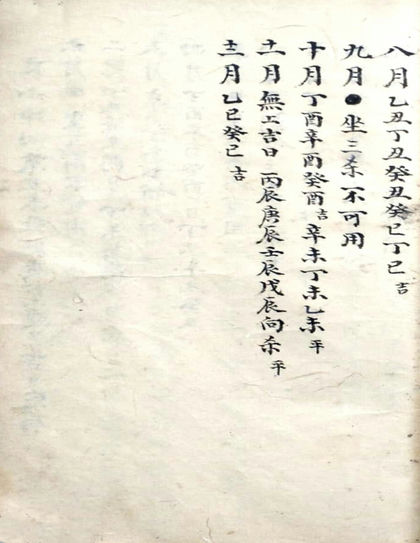 八月乙丑丁丑癸丑癸巳丁巳吉
九月●坐三杀不可用
十月丁酉辛酉癸酉吉辛未丁未乙未平
十一月無上吉日丙辰庚辰壬辰戊辰向杀平
十二月乙巳癸巳吉